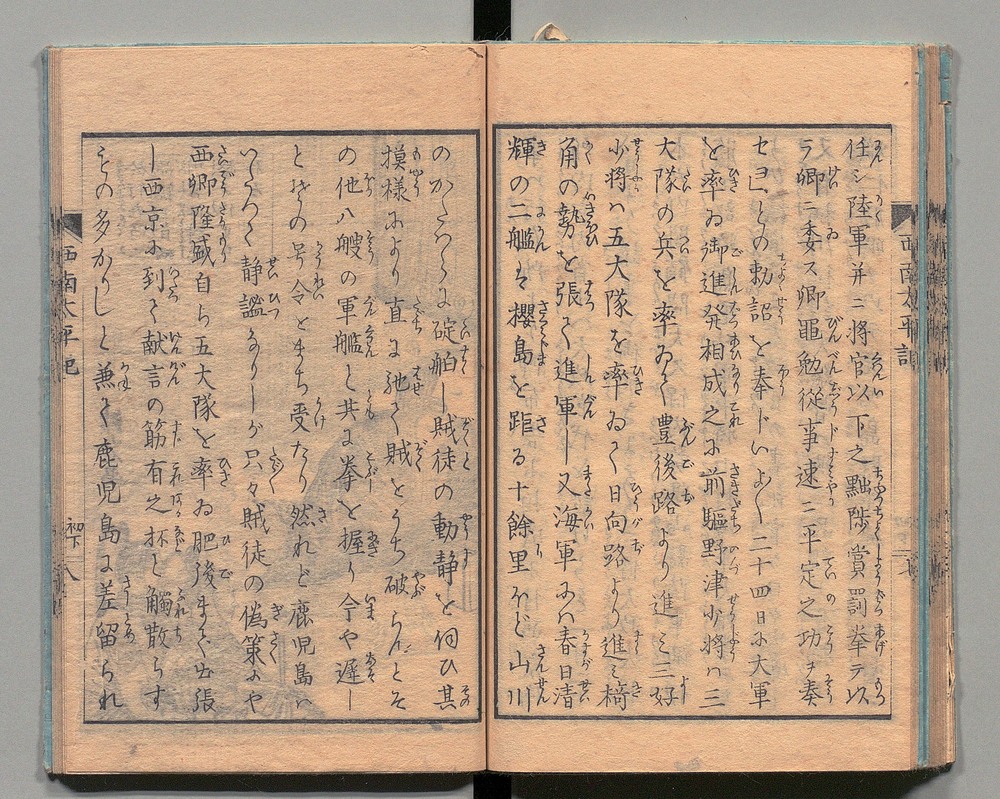 任シ陸軍并ニ将官以下之黜陟賞罰挙テ以
ラ卿ニ委ス卿黽勉従事速ニ平定之功ヲ奏
セヨとの勅詔を奉じいよ〳〵二十四日に大軍
を率ゐ御進発相成之に前駆野津少将ハ三
大隊の兵を率ゐて豊後路より進ミ三好
少将ハ五大隊を率ゐて日向路より進ミ椅
角の勢を張て進軍し又海軍にハ春日清
輝の二艦は櫻島を距る十餘里ほど山川
のかたハらに碇舶し賊徒の動静を伺ひ其
摸様により直に馳て賊をうち破らんとそ
の他八艘の軍艦と共に拳を握り今や遅し
とその号令をまち受たり然れど鹿児島ハ
いたつて静謐なりしが只々賊徒の偽策にや
西郷隆盛自ら五大隊を率ゐ肥後まで出張
し西京に到て献言の筋有之抔と觸散らす
もの多かりしと兼て鹿児島に差留られ
西南太平記
初下
八